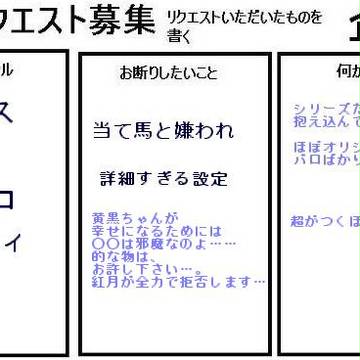 クエスト募集
リクエストいただいたものを
書く
ル
ス
コ
イ
お断りしたいこと
当て馬と嫌われ
詳細すぎる設定
黄黒ちゃんが
幸せになるためには
〇〇は邪魔なのよ……
的な物は、
お許し下さい…。
紅月が全力で拒否します…
何か
シリーズた
抱え込んで
ほぼオリジ
パロばかり
超がつくほ